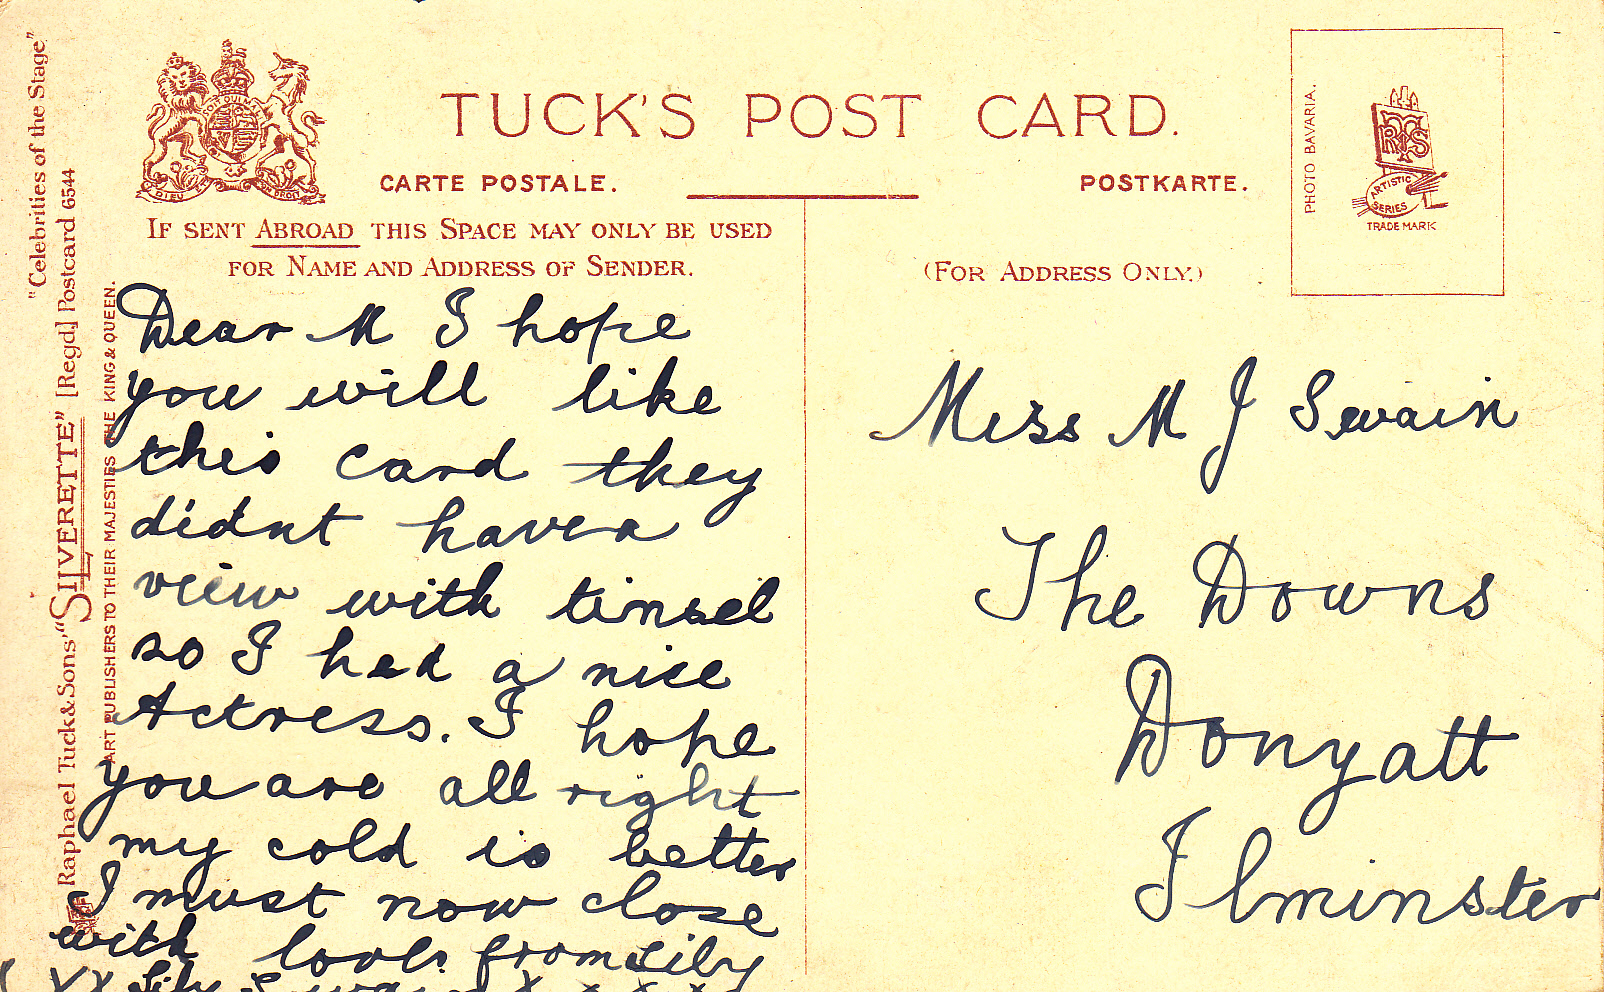 "Celebrities of the Stage"
Raphael Tuck & Sons' "SILVERETTE" [Regd.] Postcard 6544
ART PUBLISHERS TO THEIR MAJESTIES THE KING & QUEEN.
TUCK'S POST CARD.
CARTE POSTALE.
POSTKARTE.
IF SENT ABROAD THIS SPACE MAY ONLY BE USED
FOR NAME AND ADDRESS OF SENDER.
(FOR ADDRESS ONLY.)
PHOTO BAVARIA.
ARTISTIC
SERIES
TRADE MARK
Dear M I hope
you will like
this card they
didnt have a
view with tinsel
so I had a nice
Actress. I hope
you are all right
my cold is better
I must now close
with love from Lily
X X Lily Swain X X X X X
Miss M J Swain
The Downs
Donyatt
Ilminster